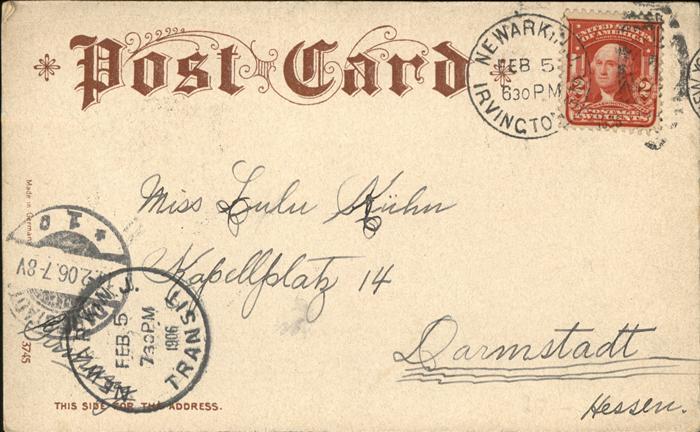 Post Card
NEWARK
FEB 5
630 PM
IRVINGTO
UNITED STATES
OF AMERICA
2 2
POSTAGE
TWO CENTS
Made in German
Miss Lulu Kühn
Kapellplatz 14
Darmstadt
Hessen.
* 1 0
2.06.7-8V
NEWARK, N. J.
FEB, 5
730 PM
1906
TRANSIT
3745
THIS SIDE FOR THE ADDRESS.